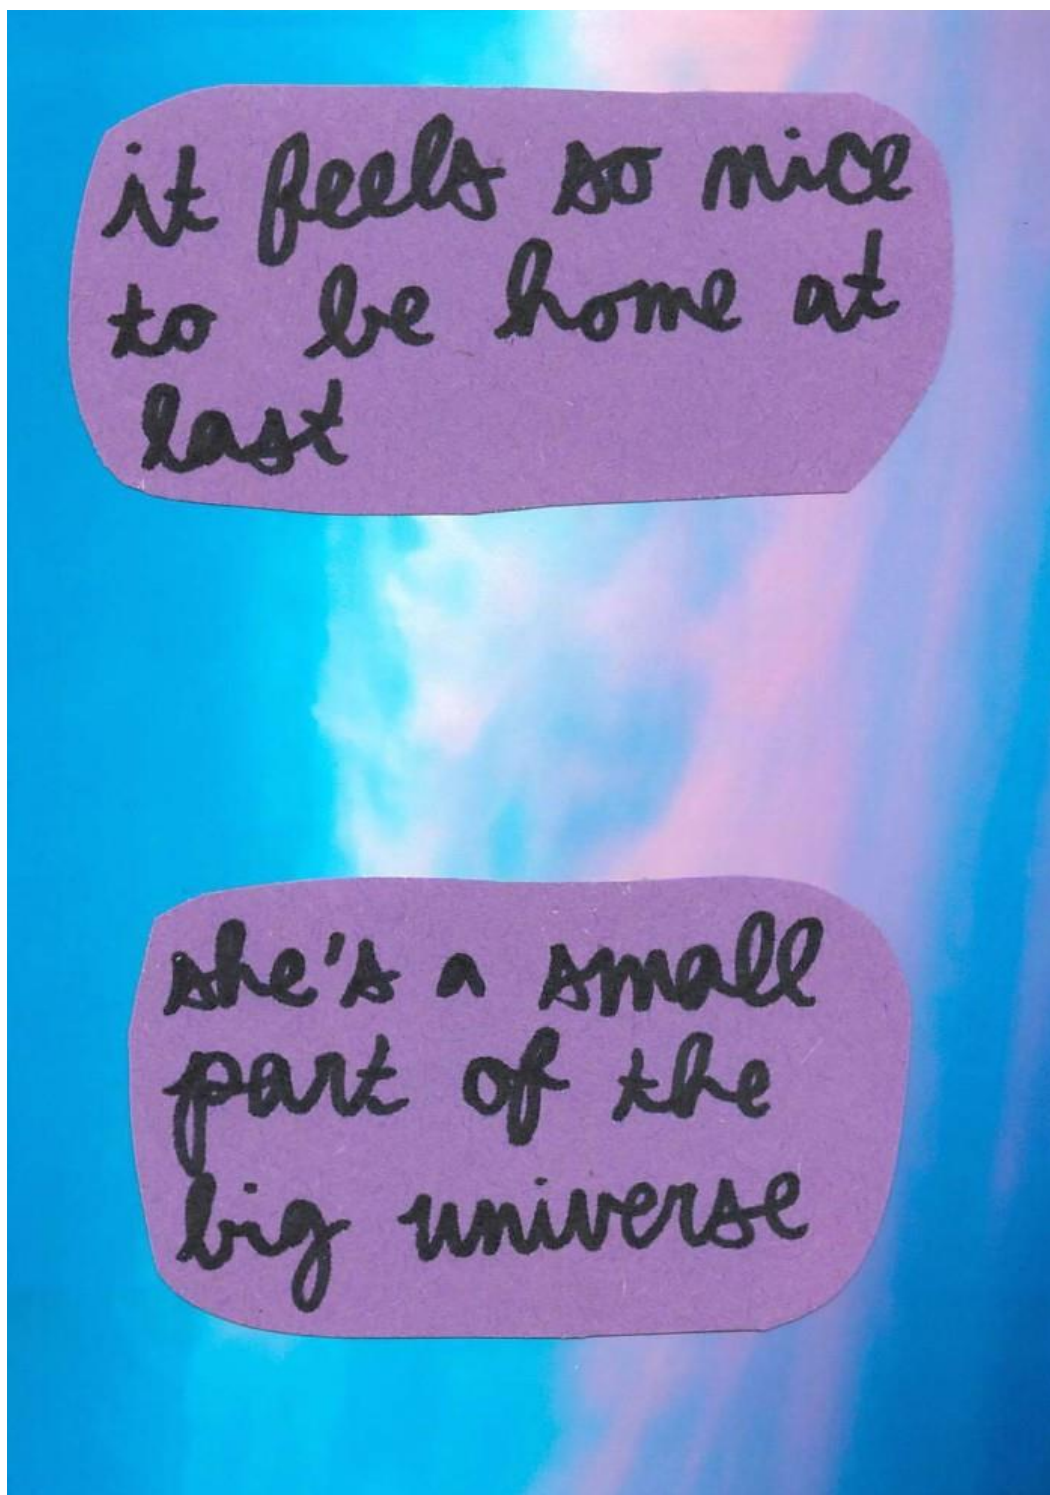 it feels so nice
to be home at
last
she's a small
part of the
big universe